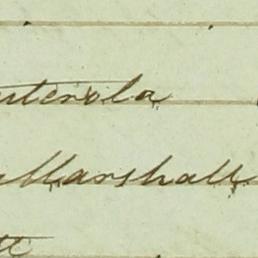 uterola
Marshall
tt